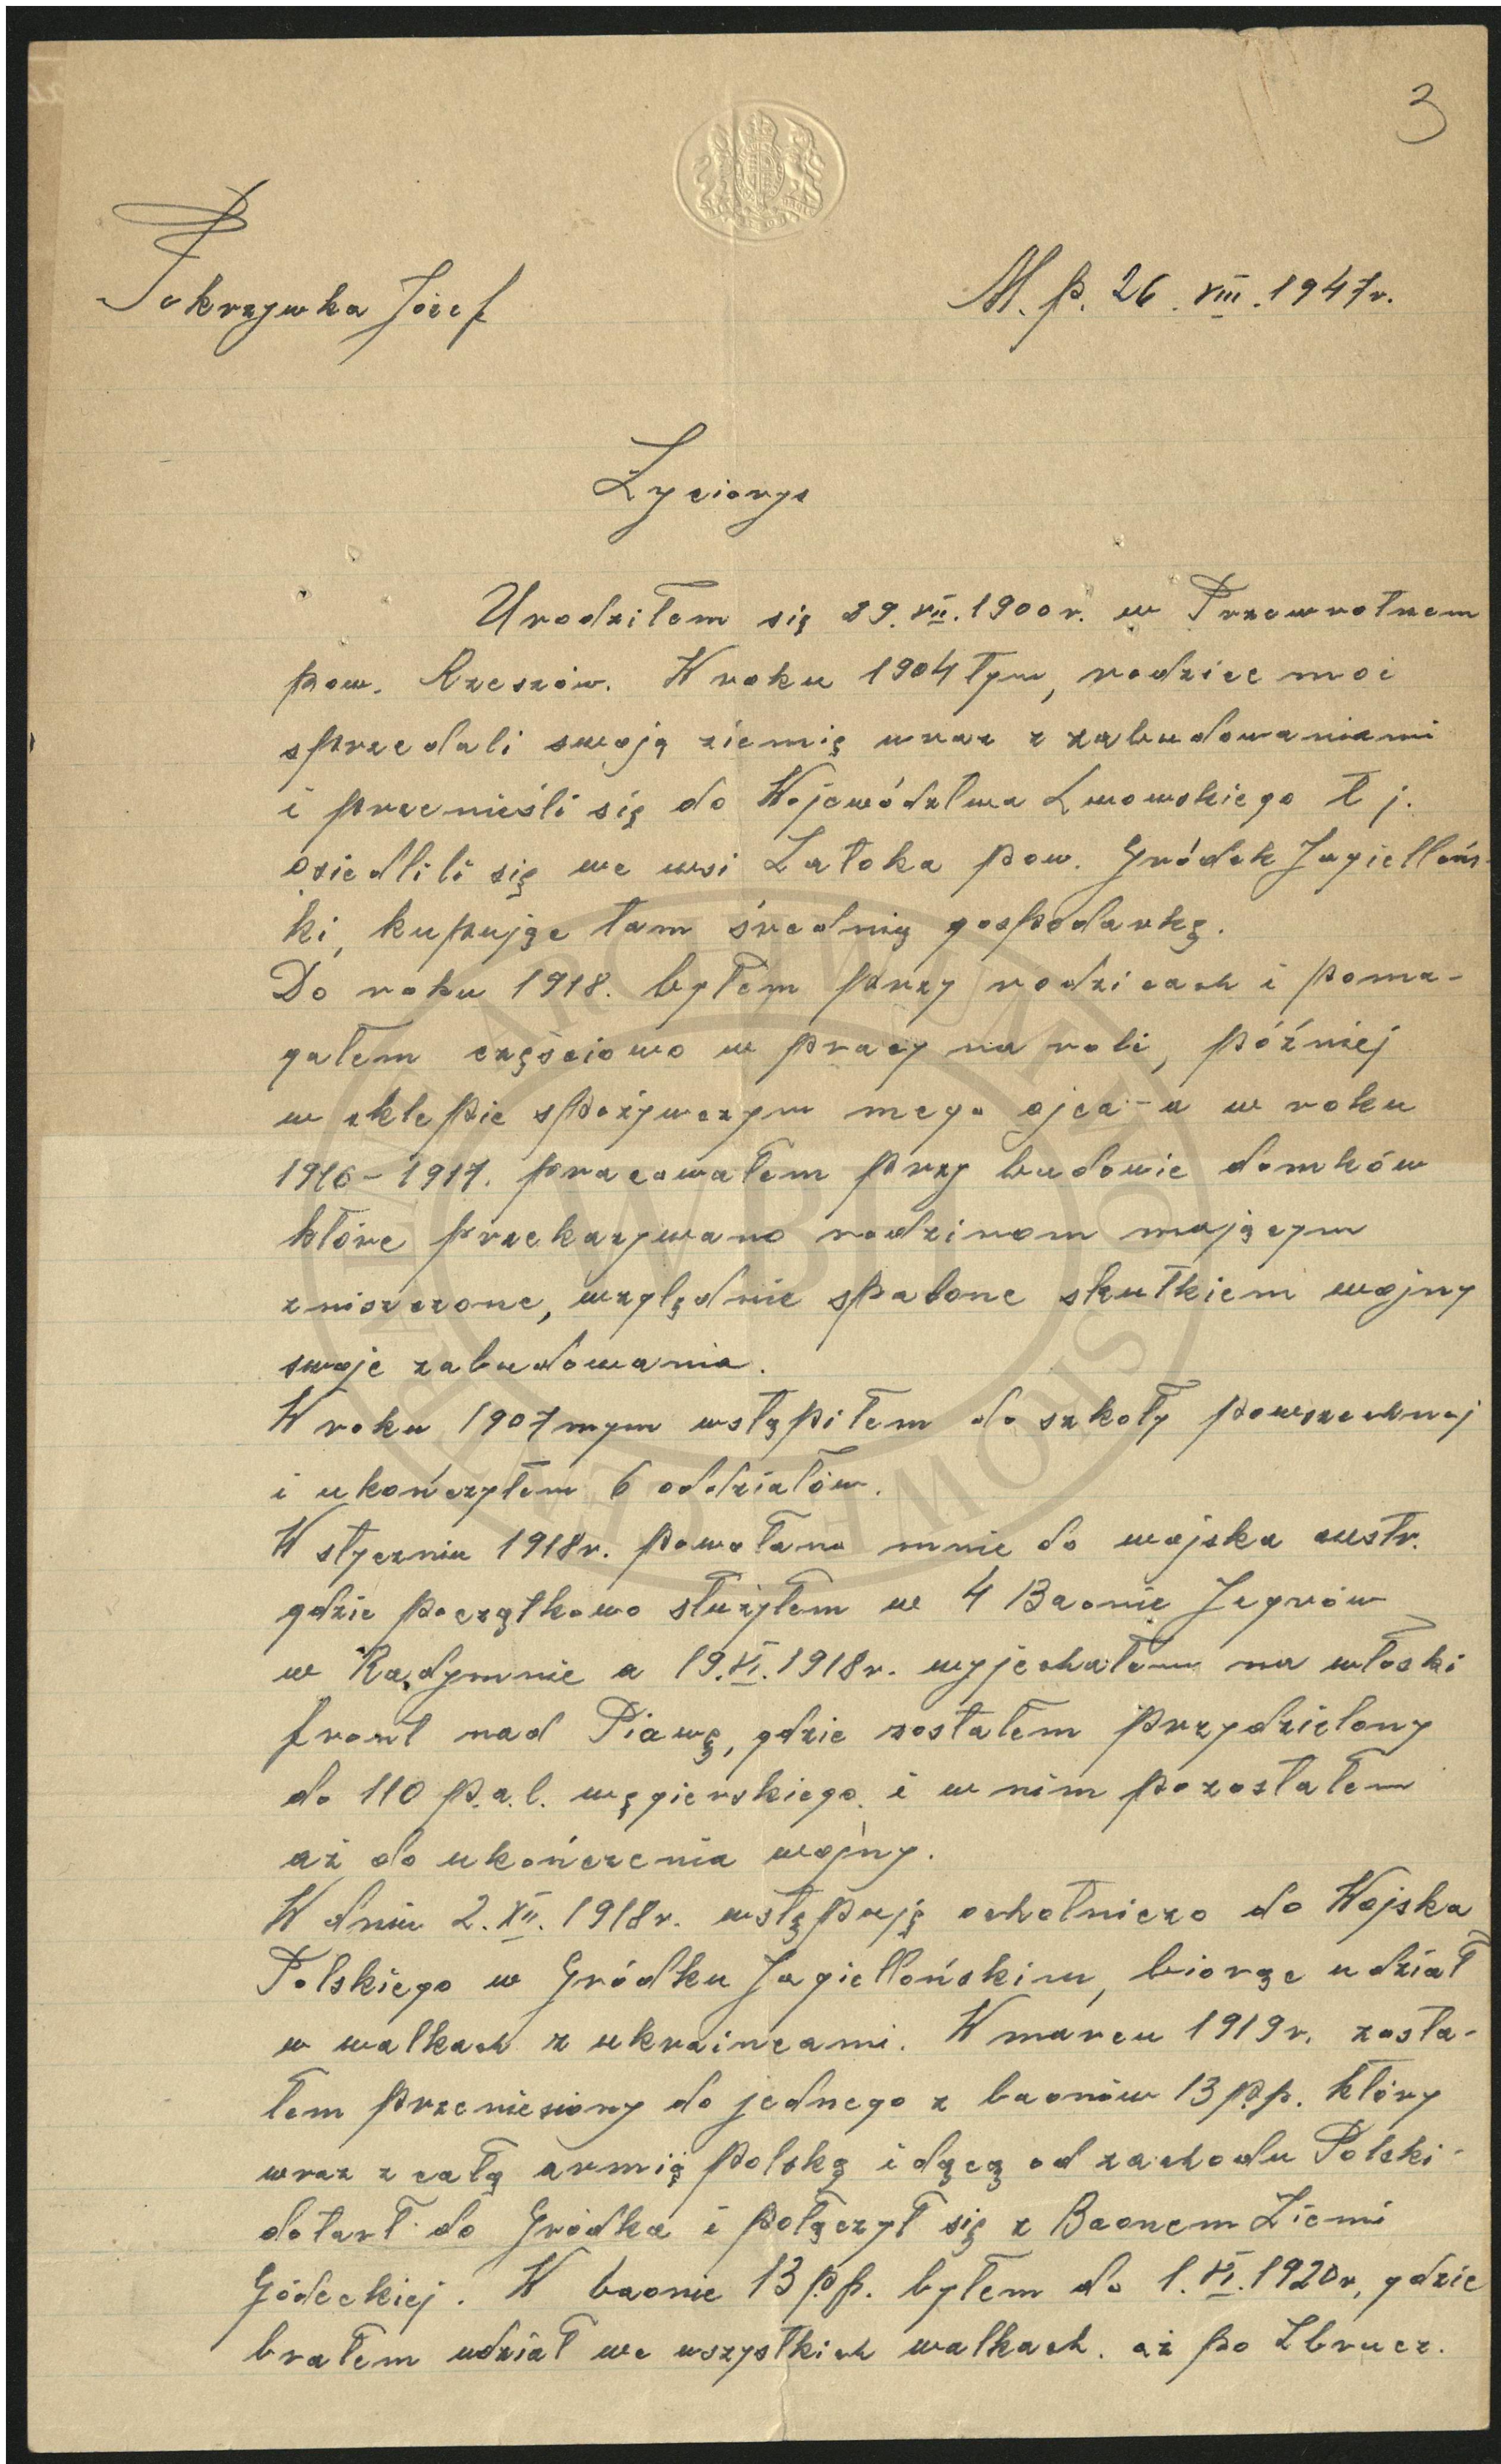 3
Pokrzywka Józef
M. p. 26. VIII. 1947 r.
Życiorys
Urodziłem się 29. VII. 1900 r. w Przewrotnem
pow. Rzeszów. W roku 1904 tym, rodzice moi
sprzedali swoją ziemię wraz z zabudowaniami
i przenieśli się do Województwa Lwowskiego t j.
osiedlili się we wsi Zatoka pow. Gródek Jagielloń-
ki, kupując tam średnią gospodarkę.
Do roku 1918. byłem przy rodzicach i poma-
gałem częściowo w pracy na roli, później
w sklepie spożywczym mego ojca - a w roku
1916 - 1917. pracowałem przy budowie domków
które przekazywano rodzinom mającym
zniszczone, względnie spalone skutkiem wojny
swoje zabudowania.
W roku 1907 mym wstąpiłem do szkoły powszechnej
i ukończyłem 6 oddziałów.
W styczniu 1918 r. powołano mnie do wojska austr.
gdzie początkowo służyłem w 4 Baonie Jegrów
w Radymnie a 19. VI. 1918 r. wyjechałem na włoski
front nad Piawę, gdzie zostałem przydzielony
do 110 p.a.l. węgierskiego i w nim pozostałem
aż do ukończenia wojny.
W dniu 2. XII. 1918 r. wstępuję ochotniczo do Wojska
Polskiego w Gródku Jagiellońskim, biorąc udział
w walkach z ukraincami. W marcu 1919 r. zosta-
łem przeniesiony do jednego z baonów 13 p.p. który
wraz z całą armią polską idącą od zachodu Polski -
dotarł do Gródka i połączył się z Baonem Ziemi
Gódeckiej. W baonie 13 p.p. byłem do 1. VI. 1920 r, gdzie
brałem udział we wszystkich walkach. aż po Zbrucz.